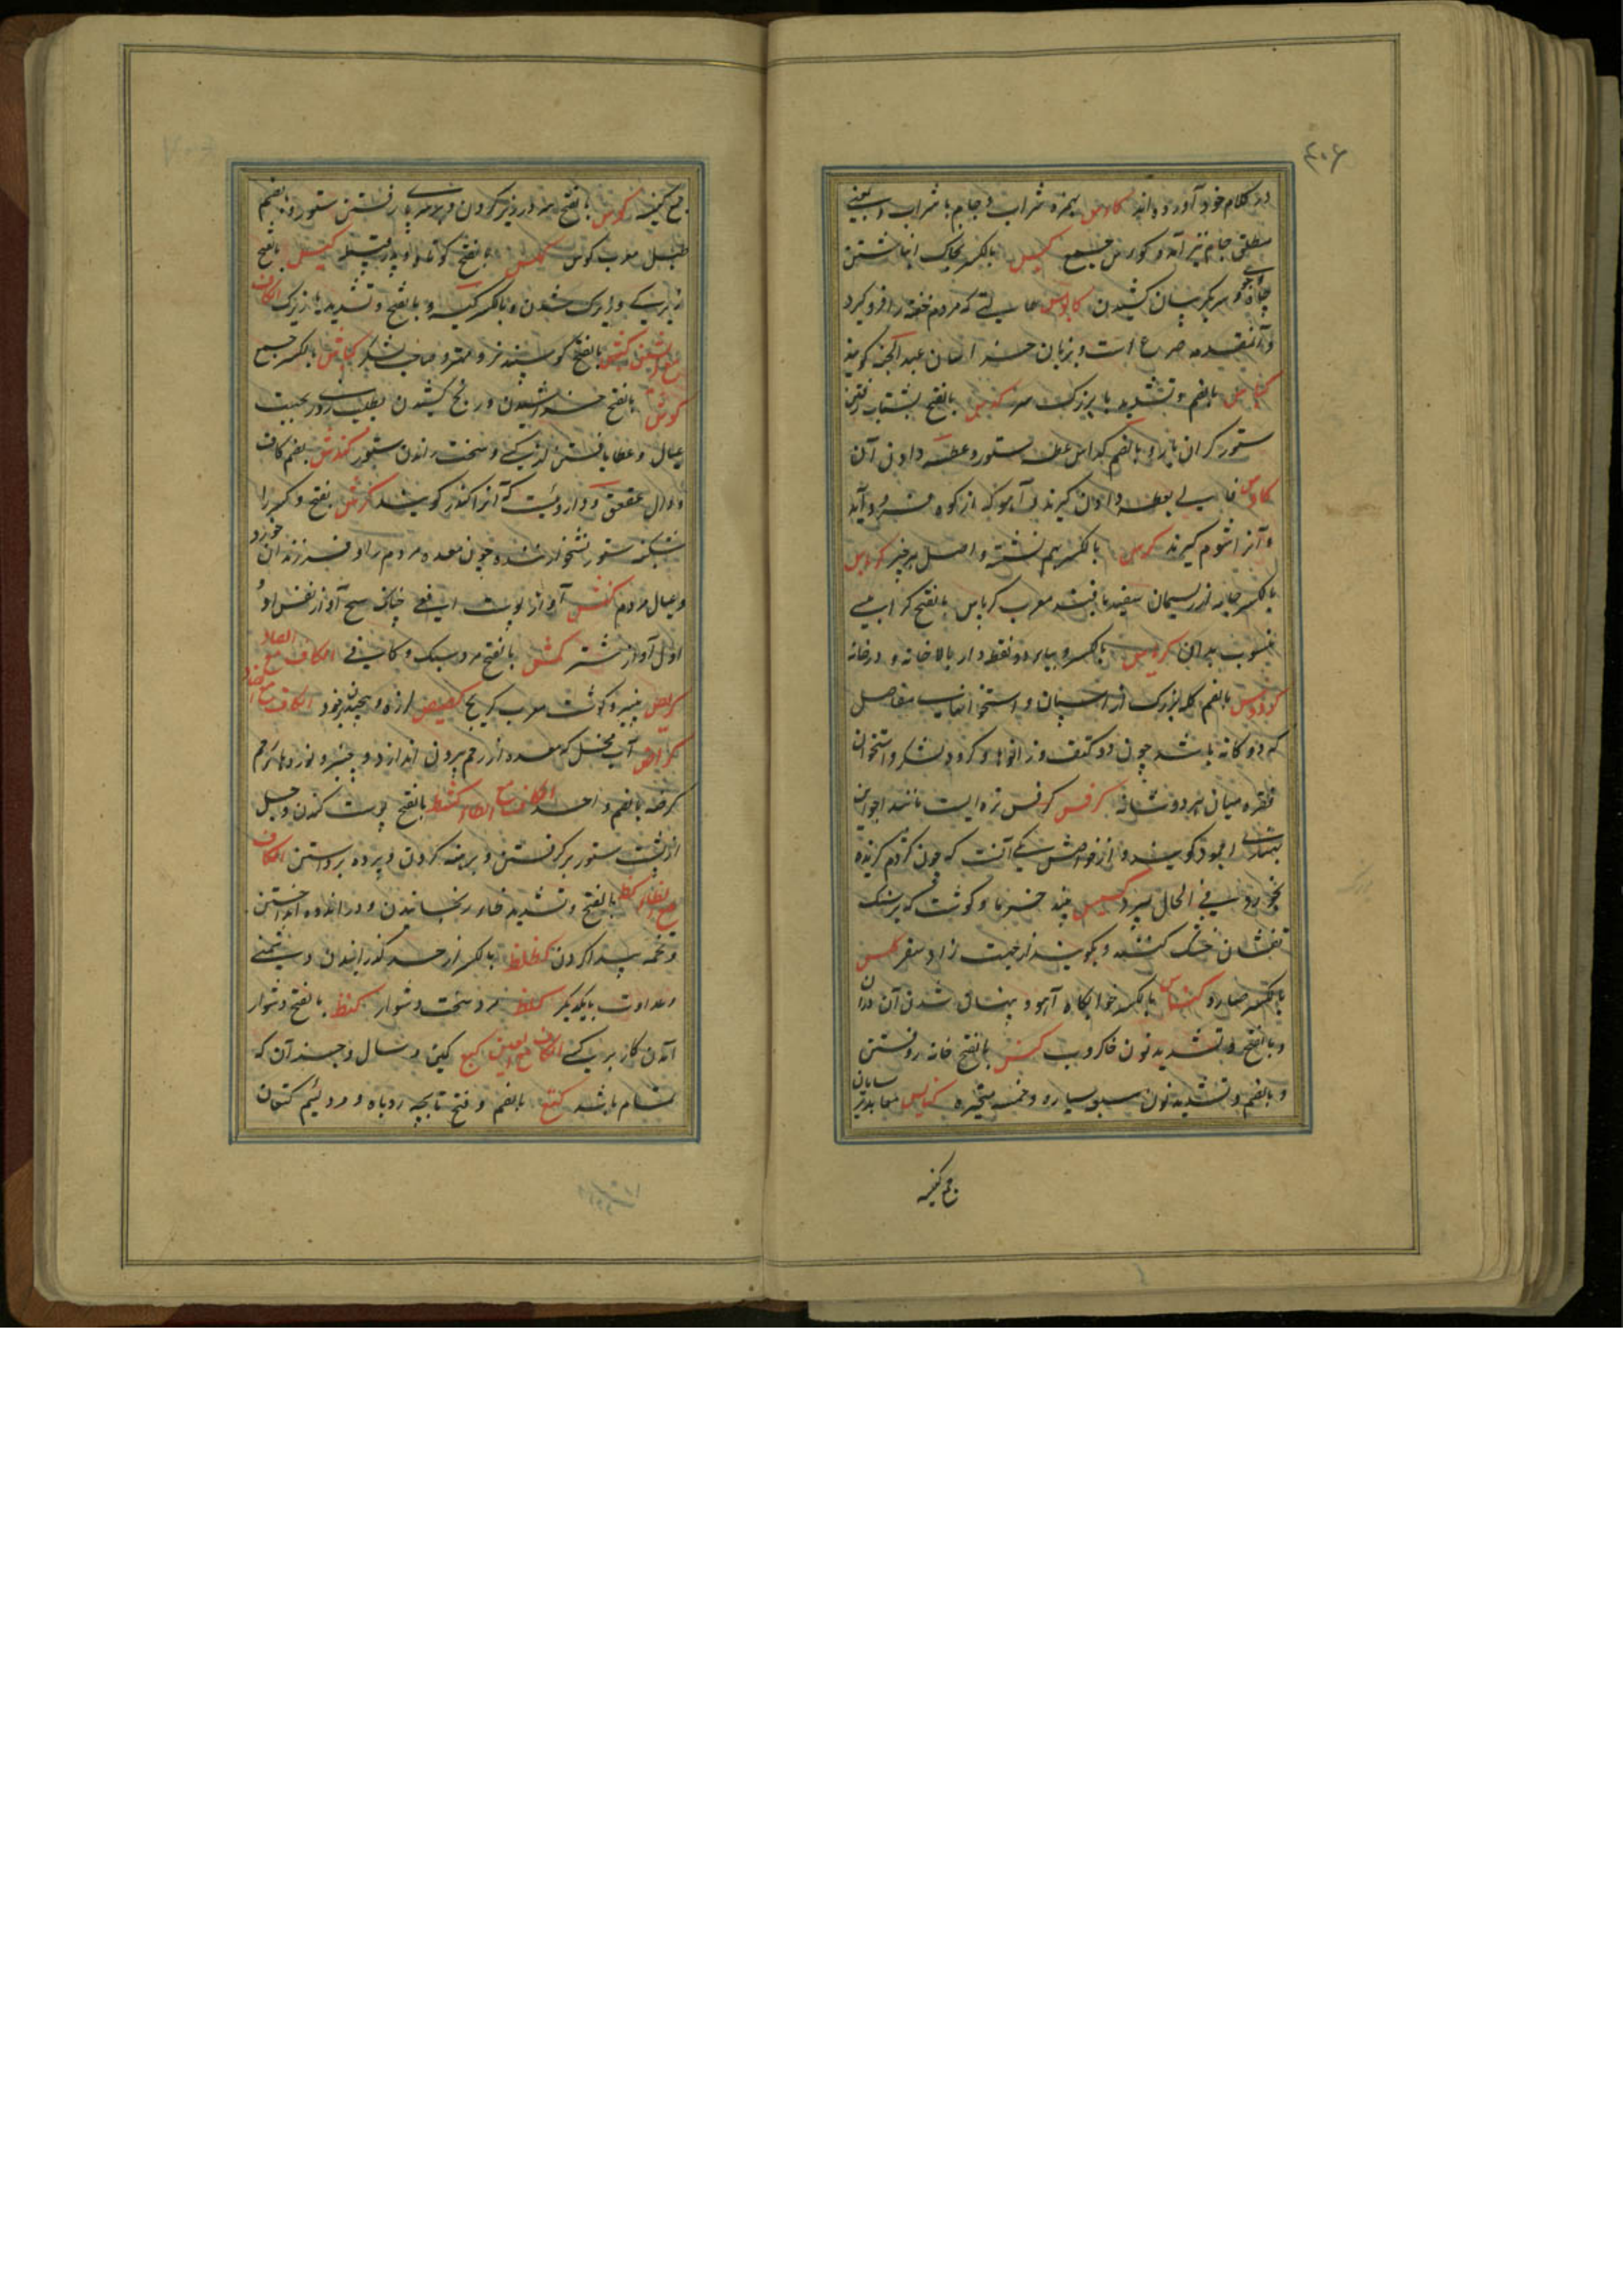 ۴۰۶
در کلام خود آورده اند کاس بهمزه شراب و جام با شراب و بمعنی
مطلق جام نیز آمده کؤوس جمع کبس بالکسر بخاک انباشتن
چاه و جوی و سر بگریبان کشیدن کابوس حالتی که مردم خفته را فرو گیرد
و آن مقدمه صرع است و بزبان خراسان عبد الجنه گویند
کباس بالضم و تشدید با بزرگ سر کدس بالفتح بشتاب رفتن
ستور گران بار و بالضم کداس عطسه ستور و عطسه دادن آن
کادس فالی بعطسه دادن گیرند و آهو که از کوه فرود آید
و آنرا شوم گیرند کرس بالکسر بهم نشسته و اصل هر چیز کرباس
بالکسر جامه از ریسمان سفید بافته معرب کرباس بالفتح کرابیسی
منسوب بدان کریاس بالکسر و بیای دو نقطه دار بالاخانه و در خانه
کردوس بالضم گله بزرگ از اسپان و استخوانهای مفاصل
که دوگانه باشد چون دو کتف و زانوها و گروه لشکر و استخوان
فقره میان هر دو شانه کرفس کرفس تره ایست مانند اجواین
بهندی اجمود گویند و از خواصش یکی آنست که چون کژدم گزیده
بخورد فی الحال بمیرد کسیس نبیذ خرما و گوشت که بر سنگ
تفشان خشک کنند و بکوبند از جهت زاد سفر کلس
بالکسر صاروج کناس بالکسر خوابگاه آهو و پنهان شدن آن دران
و بالفتح و تشدید نون خاکروب کنس بالفتح خانه روفتن
و بالضم و تشدید نون سبعه سیاره و خمسه متحیره کنایس معابد ترسایان
جمع کنیسه
جمع کنیسه کوس بالفتح سر در زیر کردن و بر سه پای رفتن ستور و بالضم
طبل معرب کوس کهمس بالفتح کوتاه کیس بالفتح
زیرکی و زیرک شدن و بالکسر کیسه و بالفتح و تشدید یا زیرک الکاف
مع الشین کبش بالفتح گوسپند نر و مهتر و صاحب لشکر کباش بالکسر جمع
کدش بالفتح خراشیدن و رنج کشیدن بطلب روزی بجهت
عیال و عطا یافتن از کسی و سخت راندن ستور کندش بضم کاف
و دال عقعق و داروئیست که آنرا کندس گویند کرش بفتح و کسر را
شکنبه ستور نشخوار زننده چون معده مردم را و فرزندان خورد
و عیال مردم کشیش آواز پوست افعی چنانکه فحیح آواز نفس او و
اول آواز شتر کمش بالفتح مرد سبک و کافی الکاف مع الصاد
کریص پنیر و گوشت معرب کریج کصیص لرزه و بیخود الکاف مع الضاد
کراض آب فحل که معده از رحم بیرون اندازد و پنیر و نوردهای رحم
کرضه بالضم واحد الکاف مع الطاء کشط بالفتح پوست کندن و جل
از پشت ستور برگرفتن و برهنه کردن و پرده برداشتن الکاف
مع الظاء کظ بالفتح و تشدید ظا رنجانیدن و در اندوه انداختن
و تخمه پیدا کردن کظاظ بالکسر از حد گذرانیدن دشمنی
و عداوت بایکدیگر کظ مرد سخت و دشوار کنظ بالفتح دشوار
آمدن کار بر کسی الکاف مع العین کتیع کین و سال و جز آن که
تمام باشد کتع بالضم و فتح تا بچه روباه و مرد لئیم کتعان